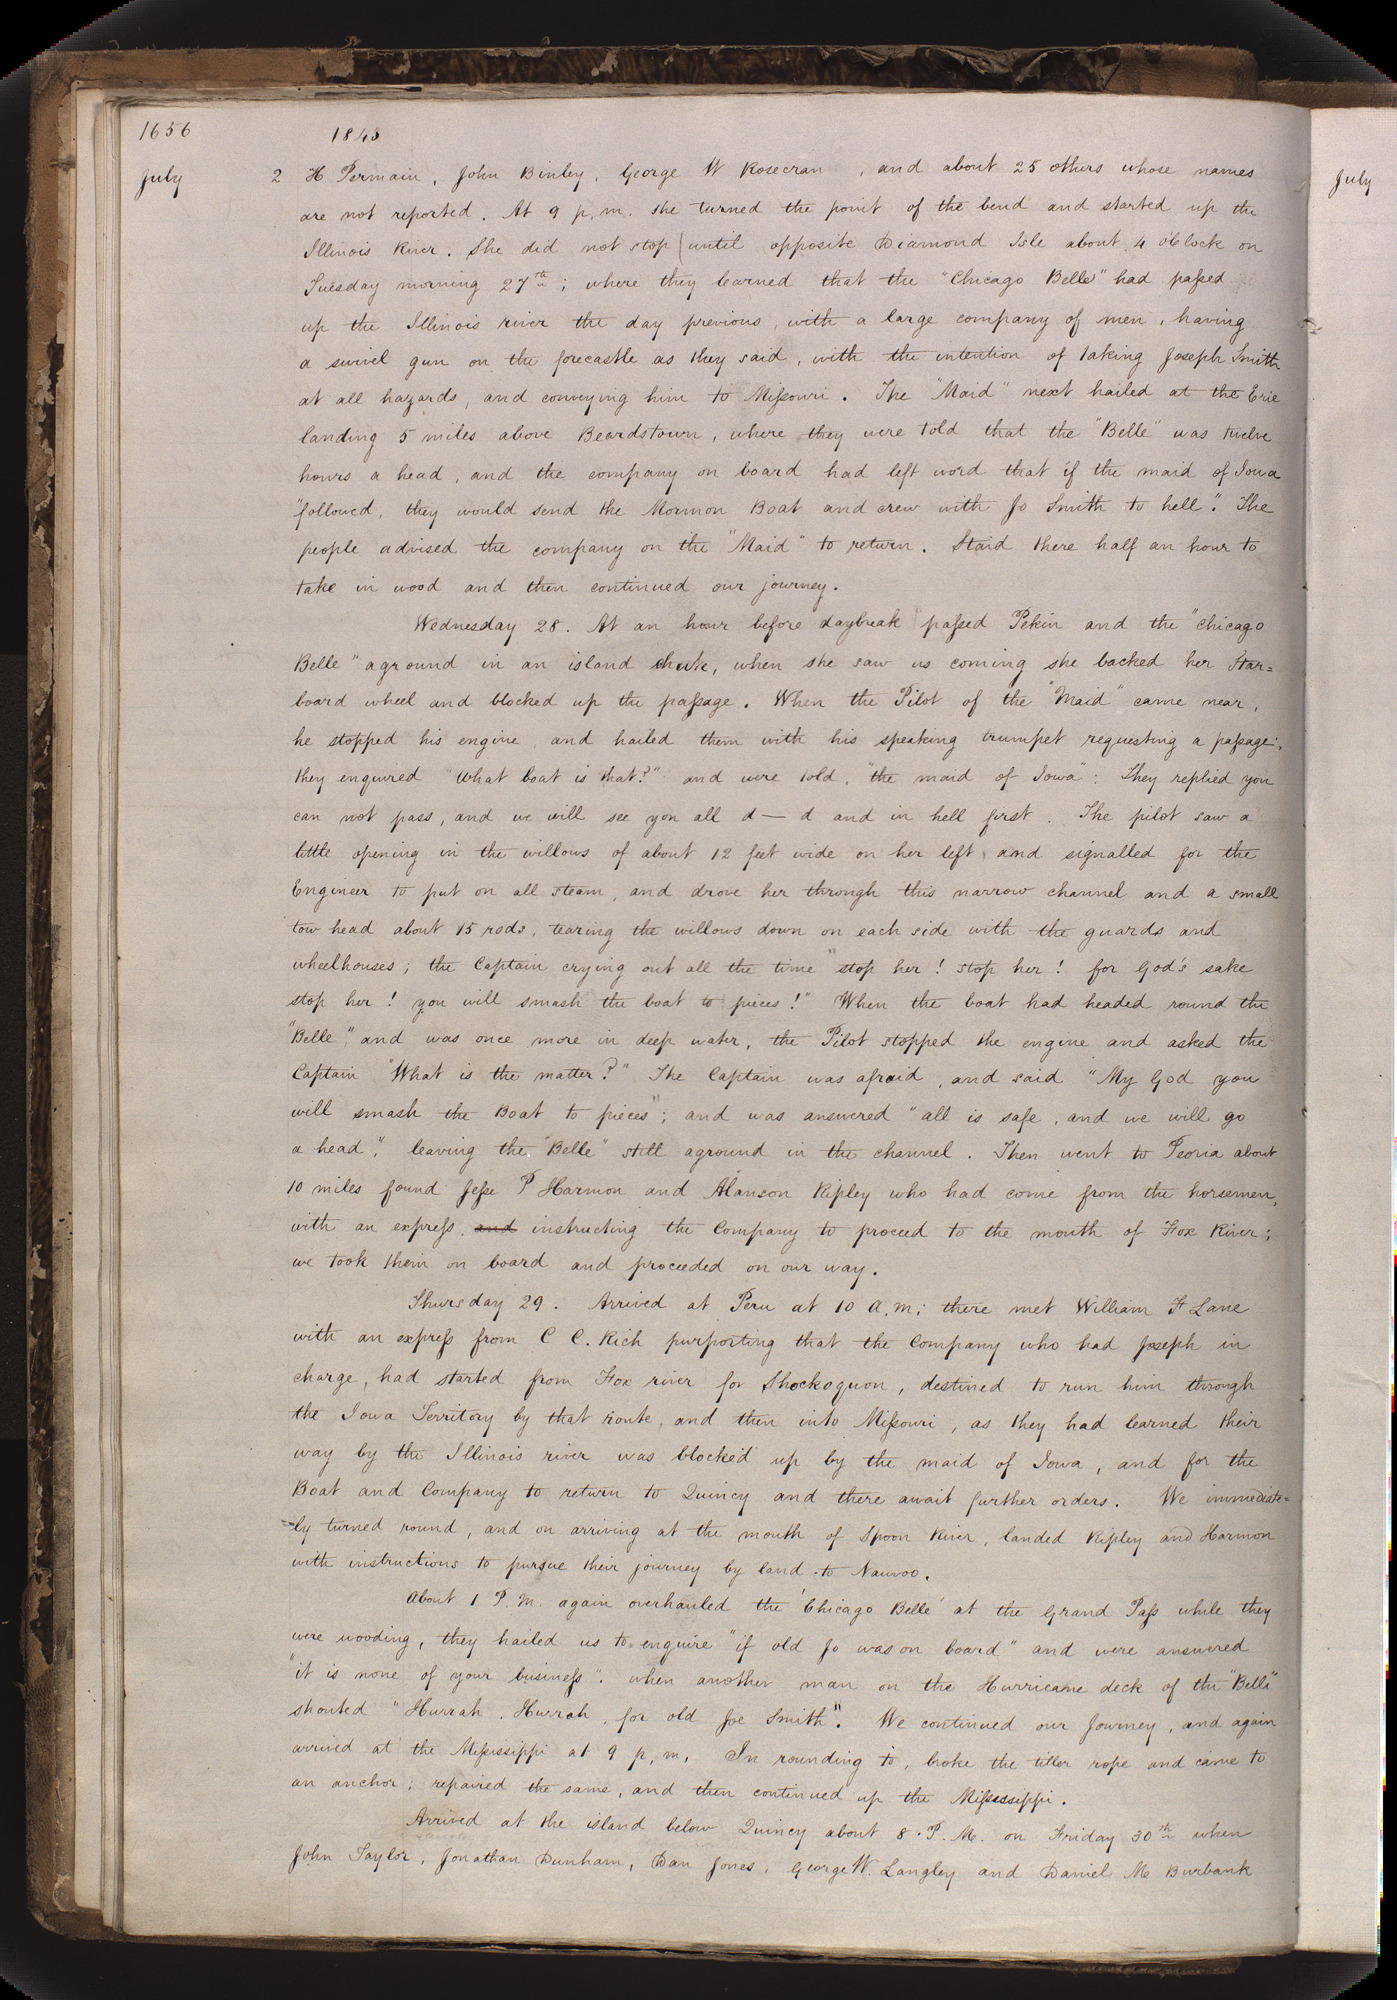 1656 1843
July 2 H Permain, John Binley, George W Rosecran, and about 25 others whose names
are not reported. At 9 p.m. she turned the point of the bend and started up the
Illinois River. She did not stop until opposite Diamond Isle about 4 o'Clock on
Tuesday morning 27th; where they learned that the "Chicago Belle" had passed
up the Illinois river the day previous, with a large company of men, having
a swivel gun on the forecastle as they said, with the intention of taking Joseph Smith
at all hazards, and conveying him to Missouri. The "Maid" next hailed at the Erie
landing 5 miles above Beardstown, where they were told that the "Belle" was twelve
hours a head, and the company on board had left word that if the maid of Iowa
"followed, they would send the Mormon Boat and crew with Jo Smith to hell". The
people advised the company on the "Maid" to return. Staid there half an hour to
take in wood and then continued our journey.
Wednesday 28. At an hour before daybreak passed Pekin and the "Chicago
Belle" aground in an island chute, when she saw us coming she backed her Star=
board wheel and blocked up the passage. When the Pilot of the "Maid" came near,
he stopped his engine, and hailed them with his speaking trumpet requesting a passage;
they enquired "what boat is that?" and were told, "the maid of Iowa": They replied you
can not pass, and we will see you all d—d and in hell first. The pilot saw a
little opening in the willows of about 12 feet wide on her left, and signalled for the
Engineer to put on all steam, and drove her through this narrow channel and a small
tow head about 15 rods, tearing the willows down on each side with the guards and
wheelhouses; the Captain crying out all the time "stop her! stop her! for God's sake
stop her! you will smash the boat to pieces!" When the boat had headed round the
"Belle", and was once more in deep water, the Pilot stopped the engine and asked the
Captain "What is the matter?" The Captain was afraid, and said "My God you
will smash the Boat to pieces"; and was answered "all is safe, and we will go
a head", leaving the "Belle" still aground in the channel. Then went to Peoria about
10 miles found Jesse P Harmon and Alanson Ripley who had come from the horsemen,
with an express, and instructing the Company to proceed to the mouth of Fox River;
we took them on board and proceeded on our way.
Thursday 29. Arrived at Peru at 10 A.M; there met William F Lane
with an express from C C. Rich purporting that the Company who had Joseph in
charge, had started from Fox river for Shockoquon, destined to run him through
the Iowa Territory by that route, and then into Missouri, as they had learned their
way by the Illinois river was blocked up by the maid of Iowa, and for the
Boat and Company to return to Quincy and there await further orders. We immediate=
=ly turned round, and on arriving at the mouth of Spoon River, landed Ripley and Harmon
with instructions to pursue their journey by land to Nauvoo.
About 1 P.M. again overhauled the 'Chicago Belle' at the Grand Pass while they
were wooding, they hailed us to enquire "if old Jo was on board" and were answered
"it is none of your business". when another man on the Hurricane deck of the "Belle"
shouted "Hurrah, Hurrah, for old Joe Smith". We continued our Journey, and again
arrived at the Mississippi at 9 p,m, In rounding to, broke the tiller rope and came to
an anchor; repaired the same, and then continued up the Mississippi.
Arrived at the island below Quincy about 8. P.M. on Friday 30th when
John Taylor, Jonathan Dunham, Dan Jones, George W. Langley and Daniel M Burbank
July